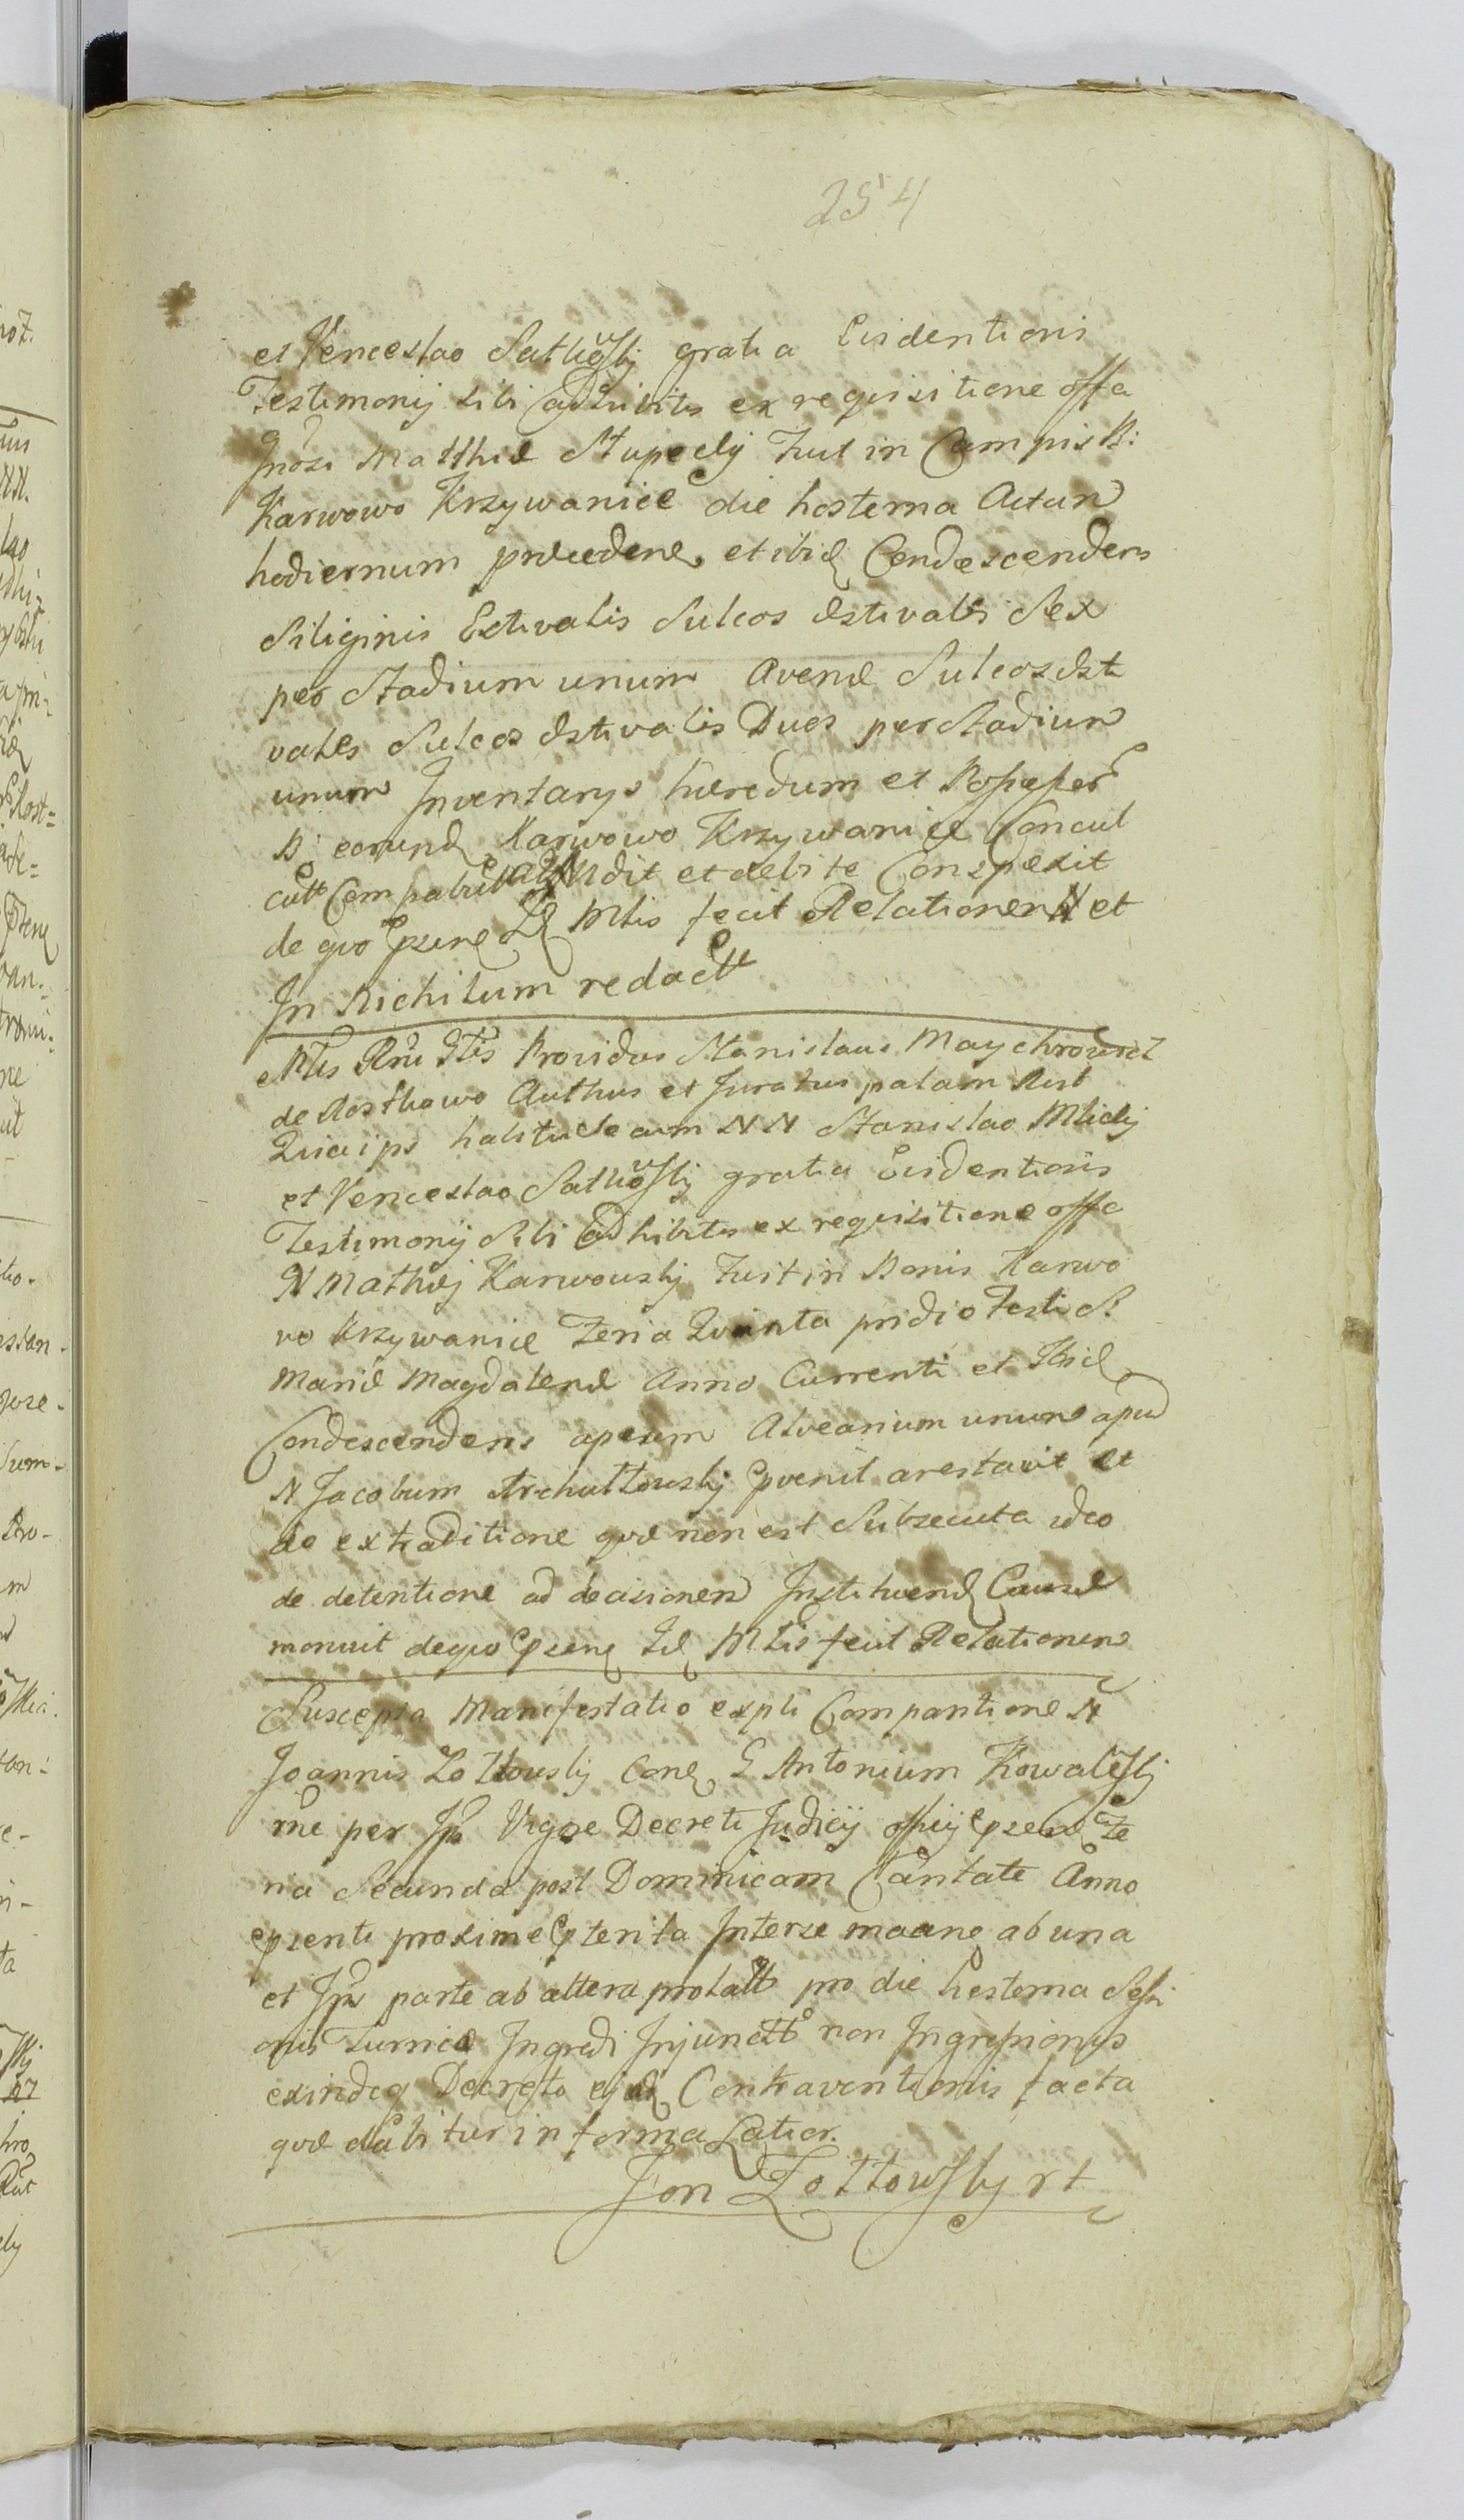 254
et Venceslao Sutkowskij gratia Evidentioris
Testimonij sibi adhibitis ex requisitione offa
Gnosi Matthiæ Stupecky fuit in Campis B:
Karwowo Krzywanice die hesterna Actum
hodiernum præceden et ibid Condescendens
Siliginis Estivalis Sulcos æstivales Sex
per Stadium unum Avenæ Sulcos æsti
vales Sulcos æstivales Duos per Stadium
unum Inventarys hæredum et
B: eorund Karwowo Krzywanice Concul
catt Compatuit et debite Conspexit
de quo psens Mlis fecit Relationem et
In Nichilum redactt
Mlis Providus Stanislaus Maychrowicz
de Rosthowo Authus et Juratus palam Rest
Quia ips habitis secum NN Stanislao Mlicky
et Venceslao Sutkowskij gratia Evidentioris
Testimonij Sibi adhibitis ex requisitione offa
N Mathiæ Karwowskij fuit in Bonis Karwo
wo Krzywanice Feria Quinta pridie Festi S.
Mariæ Magdalenæ Anno Currenti et Ibid
Condescendens apeum Alvearium unum apud
N Jacobum Archuttowskij pvenit arestavit et
de extraditione quæ non est Subsecuta ideo
de detentione ad decisionem Instituend Causæ
monuit de quo psens Mlis fecit Relationem
Suscepta Manifestatio expti Compantione N
Joannis Zottowskij Con G Antonium Kowalewskij
rne per Ips Vigore Decreti Judicij offcij psen Fe
ria Secunda post Dominicam Cantate Anno
psenti proxime pterita Inter se ab una
et Ips parte ab altera prolatt pro die hesterna Sessi
onis Turricæ Ingredi Injunctt non Ingressionis
exindeq Decreto ejusd Contraventionis facta
quæ dabitur in forma Latior.
Jon Zottowskij rt